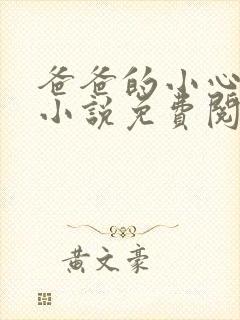 爸爸的小心
小說免費閱
黃文豪